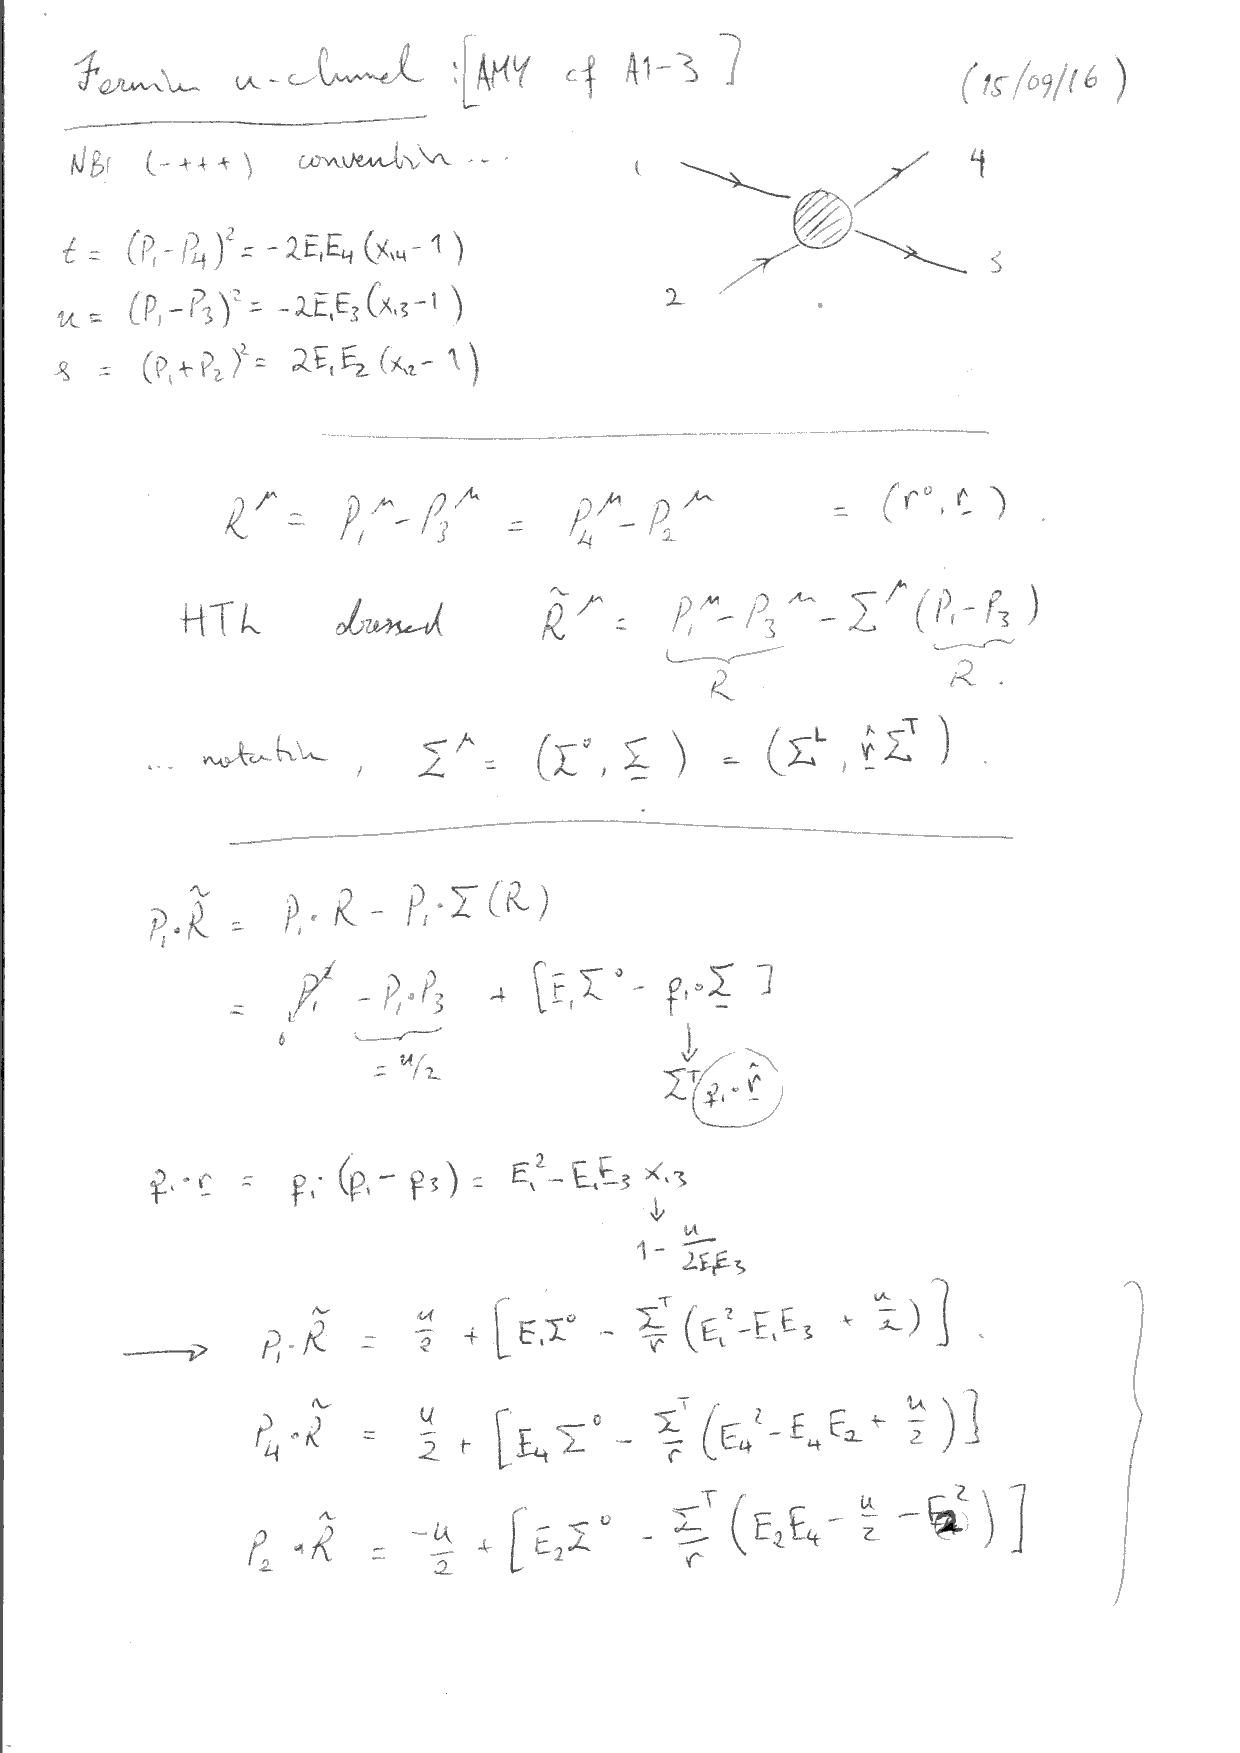 Fermion u-channel :[AMY cf A1-3]
(15/09/16)
NB! (-+++) convention...
1
4
2
3
t = (P₁-P₄)² = -2E₁E₄(x₁₄-1)
u = (P₁-P₃)² = -2E₁E₃(x₁₃-1)
s = (P₁+P₂)² = 2E₁E₂(x₁₂-1)
R^μ = P₁^μ - P₃^μ = P₄^μ - P₂^μ = (r⁰, r̲).
HTL dressed R̃^μ = P₁^μ - P₃^μ - Σ^μ(P₁-P₃)
R R.
... notation, Σ^μ = (Σ⁰, Σ̲) = (Σ^L, r̲̂Σ^T).
P₁·R̃ = P₁·R - P₁·Σ(R)
= P₁² - P₁·P₃ + [E₁Σ⁰ - p₁·Σ̲]
0 = u/2 ↓
Σ^T p₁·r̲̂
p₁·r̲ = p₁·(p₁-p₃) = E₁² - E₁E₃ x₁₃
↓
1 - u/2E₁E₃
→ P₁·R̃ = u/2 + [E₁Σ⁰ - Σ^T/r (E₁²-E₁E₃ + u/2)].
P₄·R̃ = u/2 + [E₄Σ⁰ - Σ^T/r (E₄²-E₄E₂ + u/2)]
P₂·R̃ = -u/2 + [E₂Σ⁰ - Σ^T/r (E₂E₄ - u/2 - E₂²)]